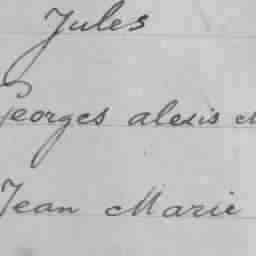 Jules
Georges alexis
Jean Marie